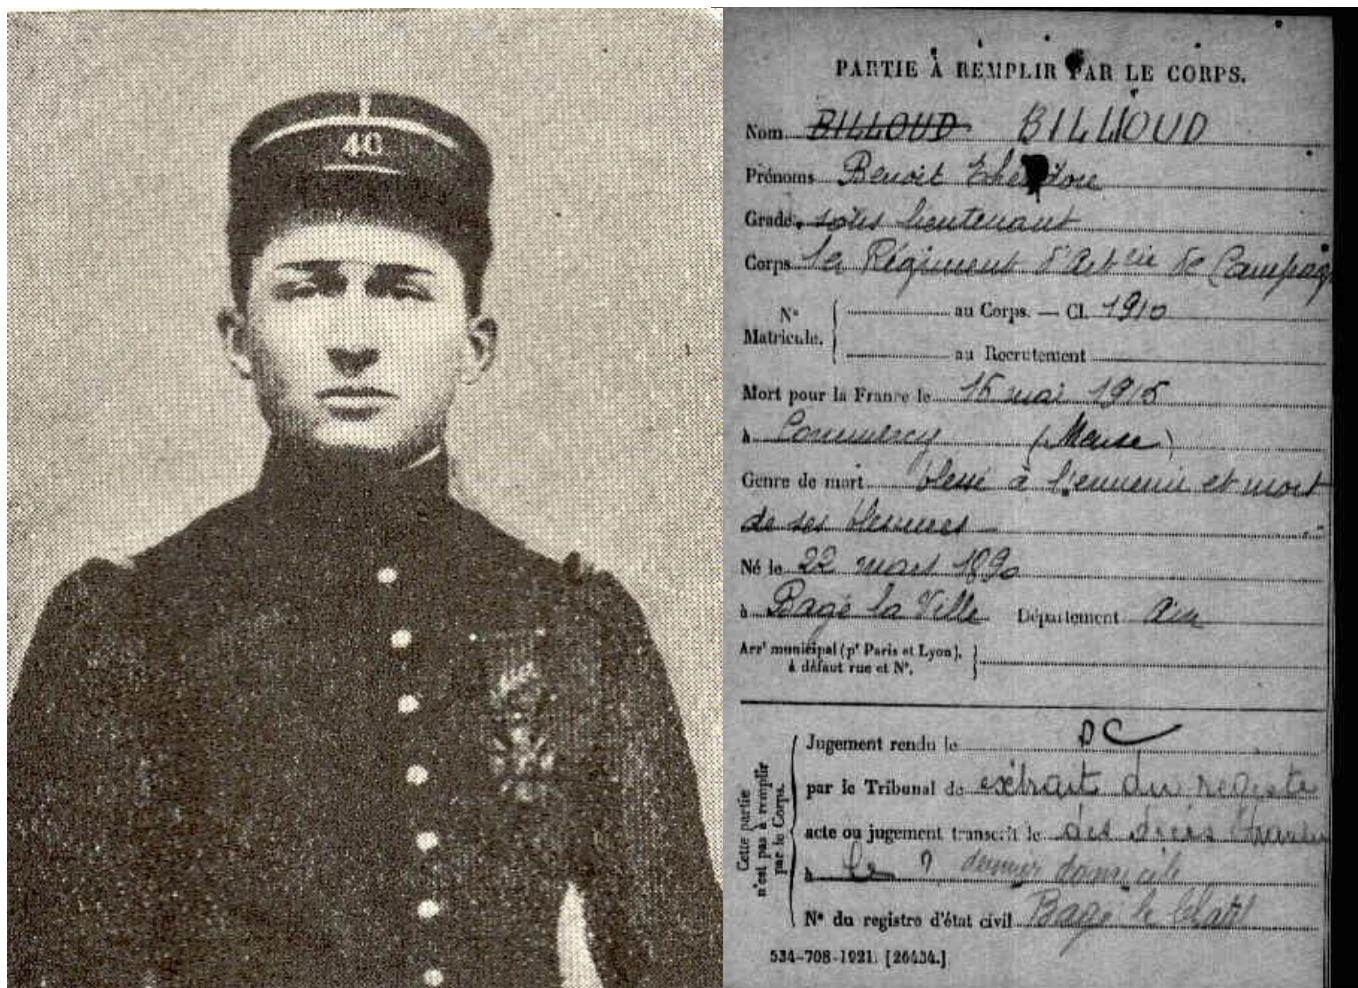 40
PARTIE À REMPLIR PAR LE CORPS.
Nom BILLOUD BILLIOUD
Prénoms Benoit
Grade sous lieutenant
Corps 1er Régiment d'Art rie de Campag
N° Matricule. au Corps. — Cl. 1910
au Recrutement
Mort pour la France le 16 mai 1915
à Commercy (Meuse)
Genre de mort blessé à l'ennemi et mort
de ses blessures
Né le 22 mars 1890
à Bagé la Ville Département Ain
Arrt municipal (pr Paris et Lyon),
à défaut rue et N°.
Cette partie
n'est pas à remplir
par le Corps.
Jugement rendu le DC
par le Tribunal de extrait du registe
acte ou jugement transcrit le des décès
à le ? dernier domicile
N° du registre d'état civil Bagé le Chatel
534-708-1921. [26434.]